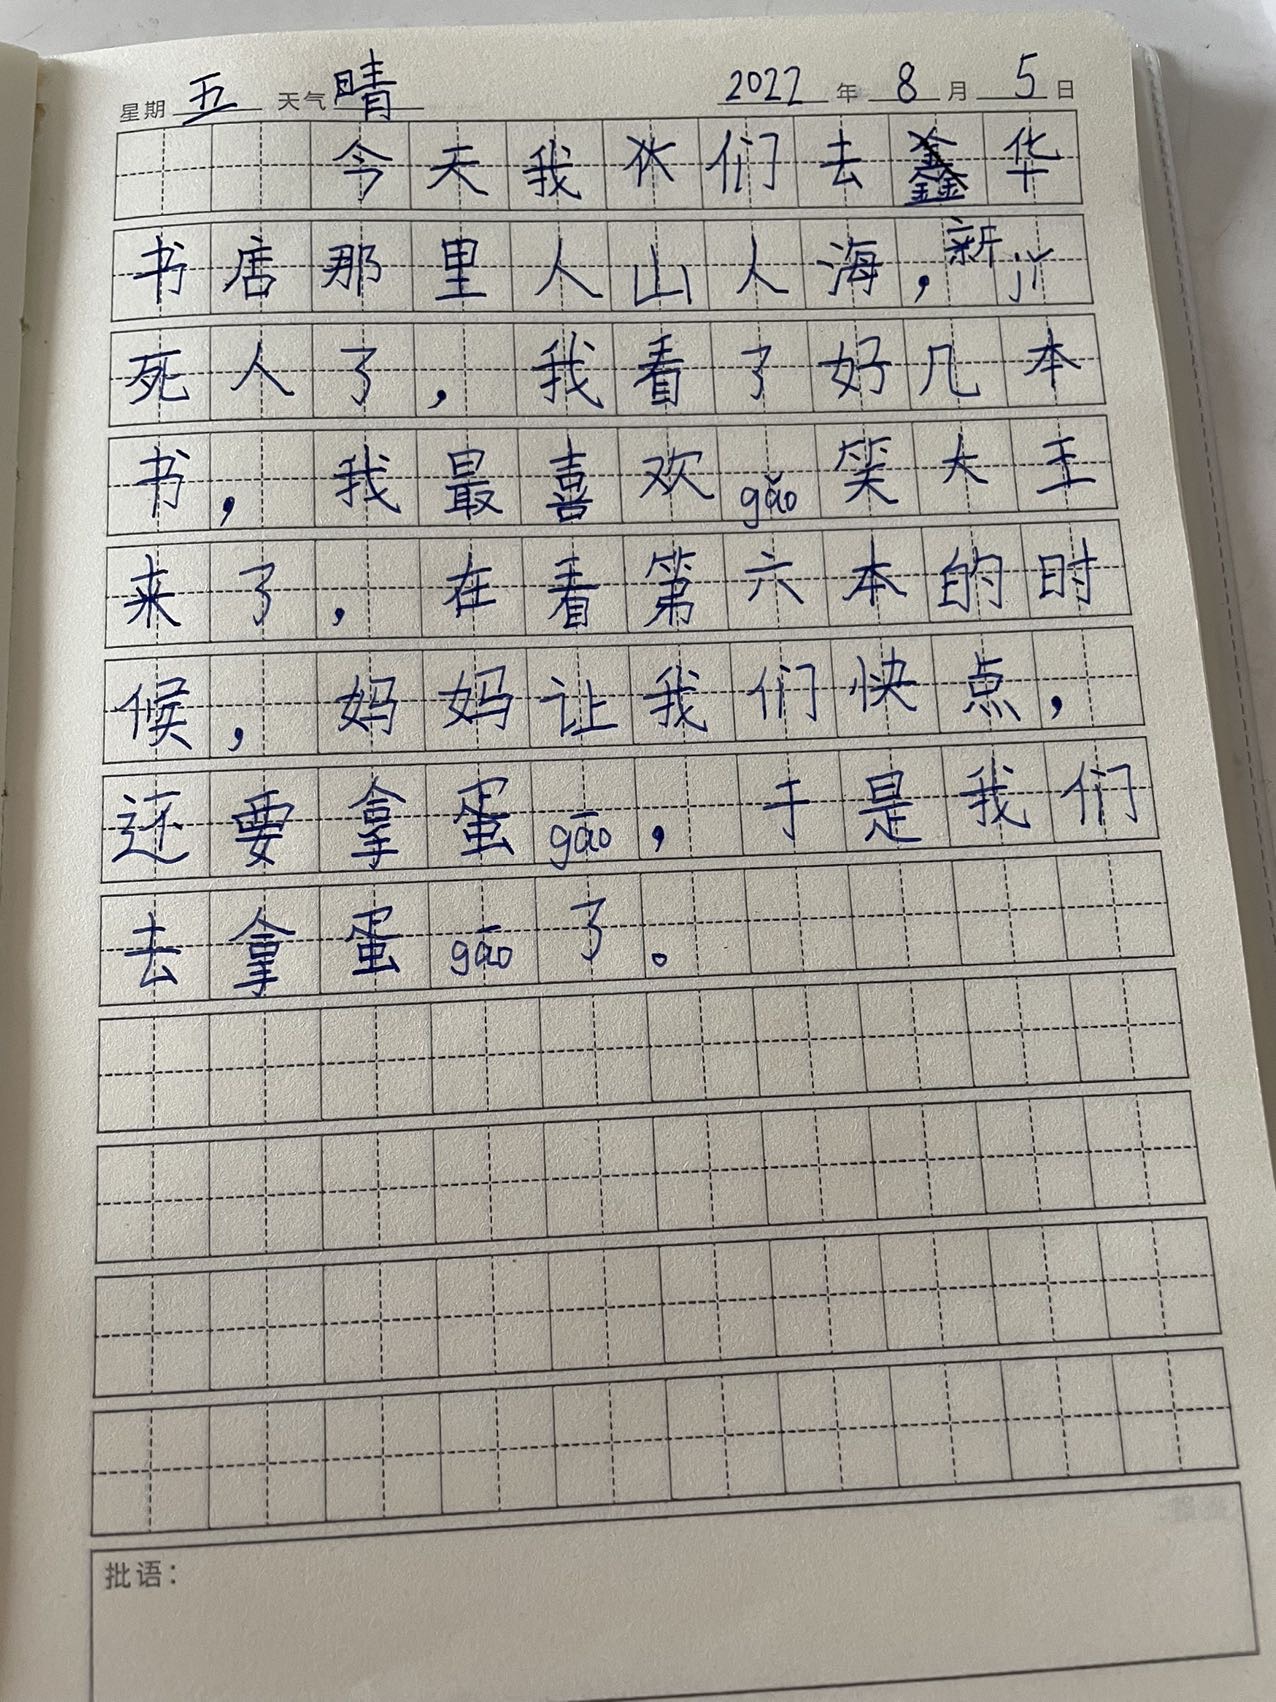 星期 五 天气 晴 2022 年 8 月 5 日
今天我伙们去鑫华
书店那里人山人海,新
死人了,我看了好几本
书,我最喜欢gǎo笑大王
来了,在看第六本的时
候,妈妈让我们快点,
还要拿蛋gāo,于是我们
去拿蛋gāo了。
批语: